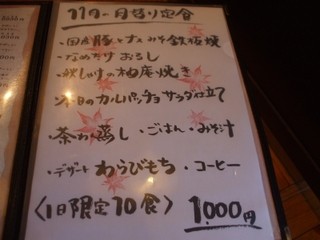 11月の月替り定食
・国産豚となす みそ鉄板焼
・なめたけおろし
・秋しゃけの柚庵焼き
・本日のカルパッチョ サラダ仕立て
・茶わん蒸し ・ごはん ・みそ汁
・デザート わらびもち ・コーヒー
〈1日限定10食〉 1,000円